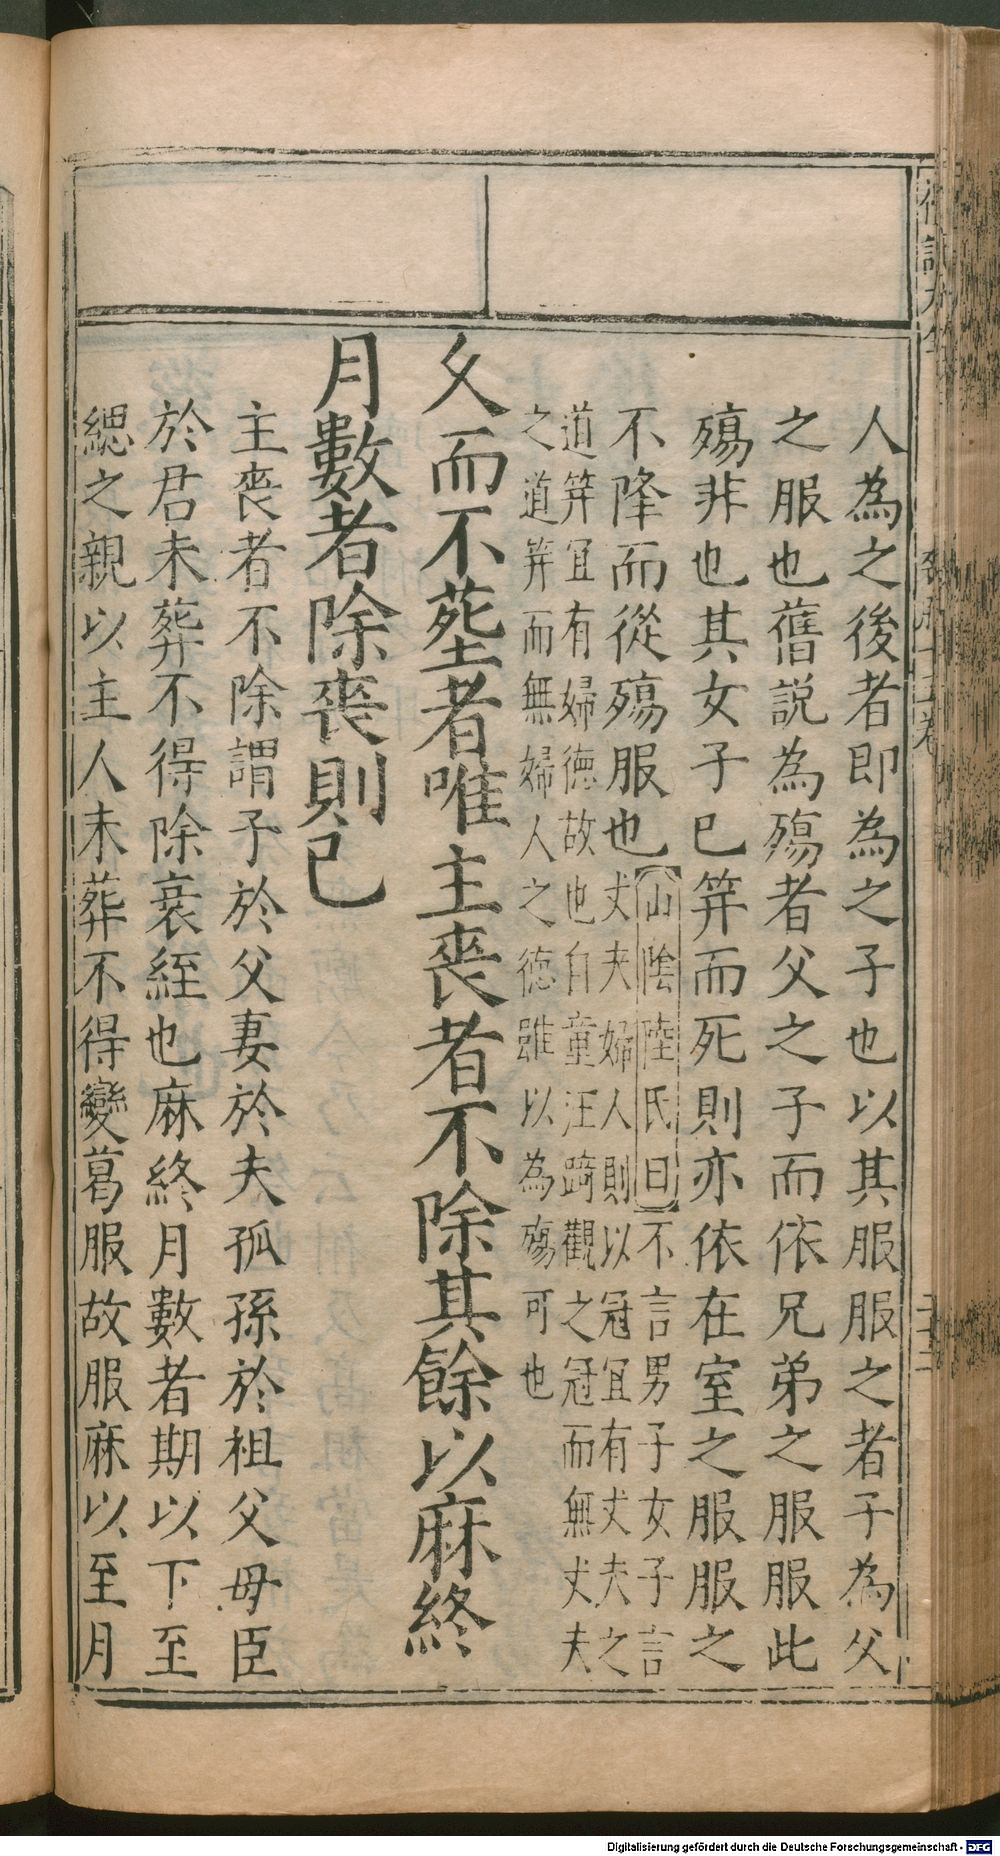 人為之後者即為之子也以其服服之者子為父
之服也舊説為殤者父之子而依兄弟之服服此
殤非也其女子已笄而死則亦依在室之服服之
不降而從殤服也
山陰陸氏曰不言男子女子言
丈夫婦人則以冠宜有丈夫之
道笄宜有婦德故也自童汪踦觀之冠而無丈夫
之道笄而無婦人之德雖以為殤可也
久而不塟者唯主喪者不除其餘以麻終
月數者除喪則已
主喪者不除謂子於父妻於夫孤孫於祖父母臣
於君未葬不得除衰絰也麻終月數者期以下至
緦之親以主人未葬不得變葛服故服麻以至月
Digitalisierung gefördert durch die Deutsche Forschungsgemeinschaft - DFG